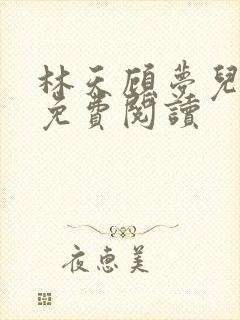 林天顧夢兒
免費閱讀
夜惠美